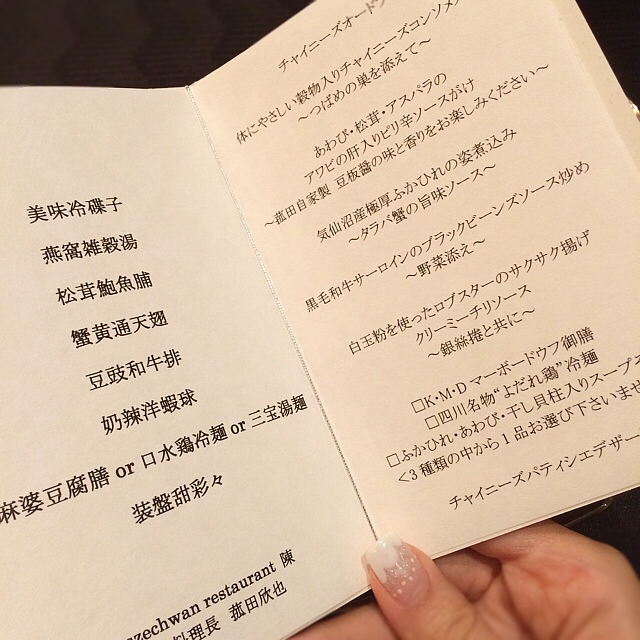 美味冷碟子
燕窩雑穀湯
松茸鮑魚脯
蟹黄通天翅
豆豉和牛排
奶辣洋蝦球
麻婆豆腐膳 or 口水鶏冷麺 or 三宝湯麺
装盤甜彩々
szechwan restaurant 陳
料理長 菰田欣也
チャイニーズオードブ
体にやさしい穀物入りチャイニーズコンソメ
～つばめの巣を添えて～
あわび・松茸・アスパラの
アワビの肝入りピリ辛ソースがけ
～菰田自家製 豆板醤の味と香りをお楽しみください～
気仙沼産極厚ふかひれの姿煮込み
～タラバ蟹の旨味ソース～
黒毛和牛サーロインのブラックビーンズソース炒め
～野菜添え～
白玉粉を使ったロブスターのサクサク揚げ
クリーミーチリソース
～銀絲捲と共に～
□K・M・Dマーボードウフ御膳
□四川名物“よだれ鶏”冷麺
□ふかひれ・あわび・干し貝柱入りスープ
＜3種類の中から1品お選び下さいませ
チャイニーズパティシエデザー